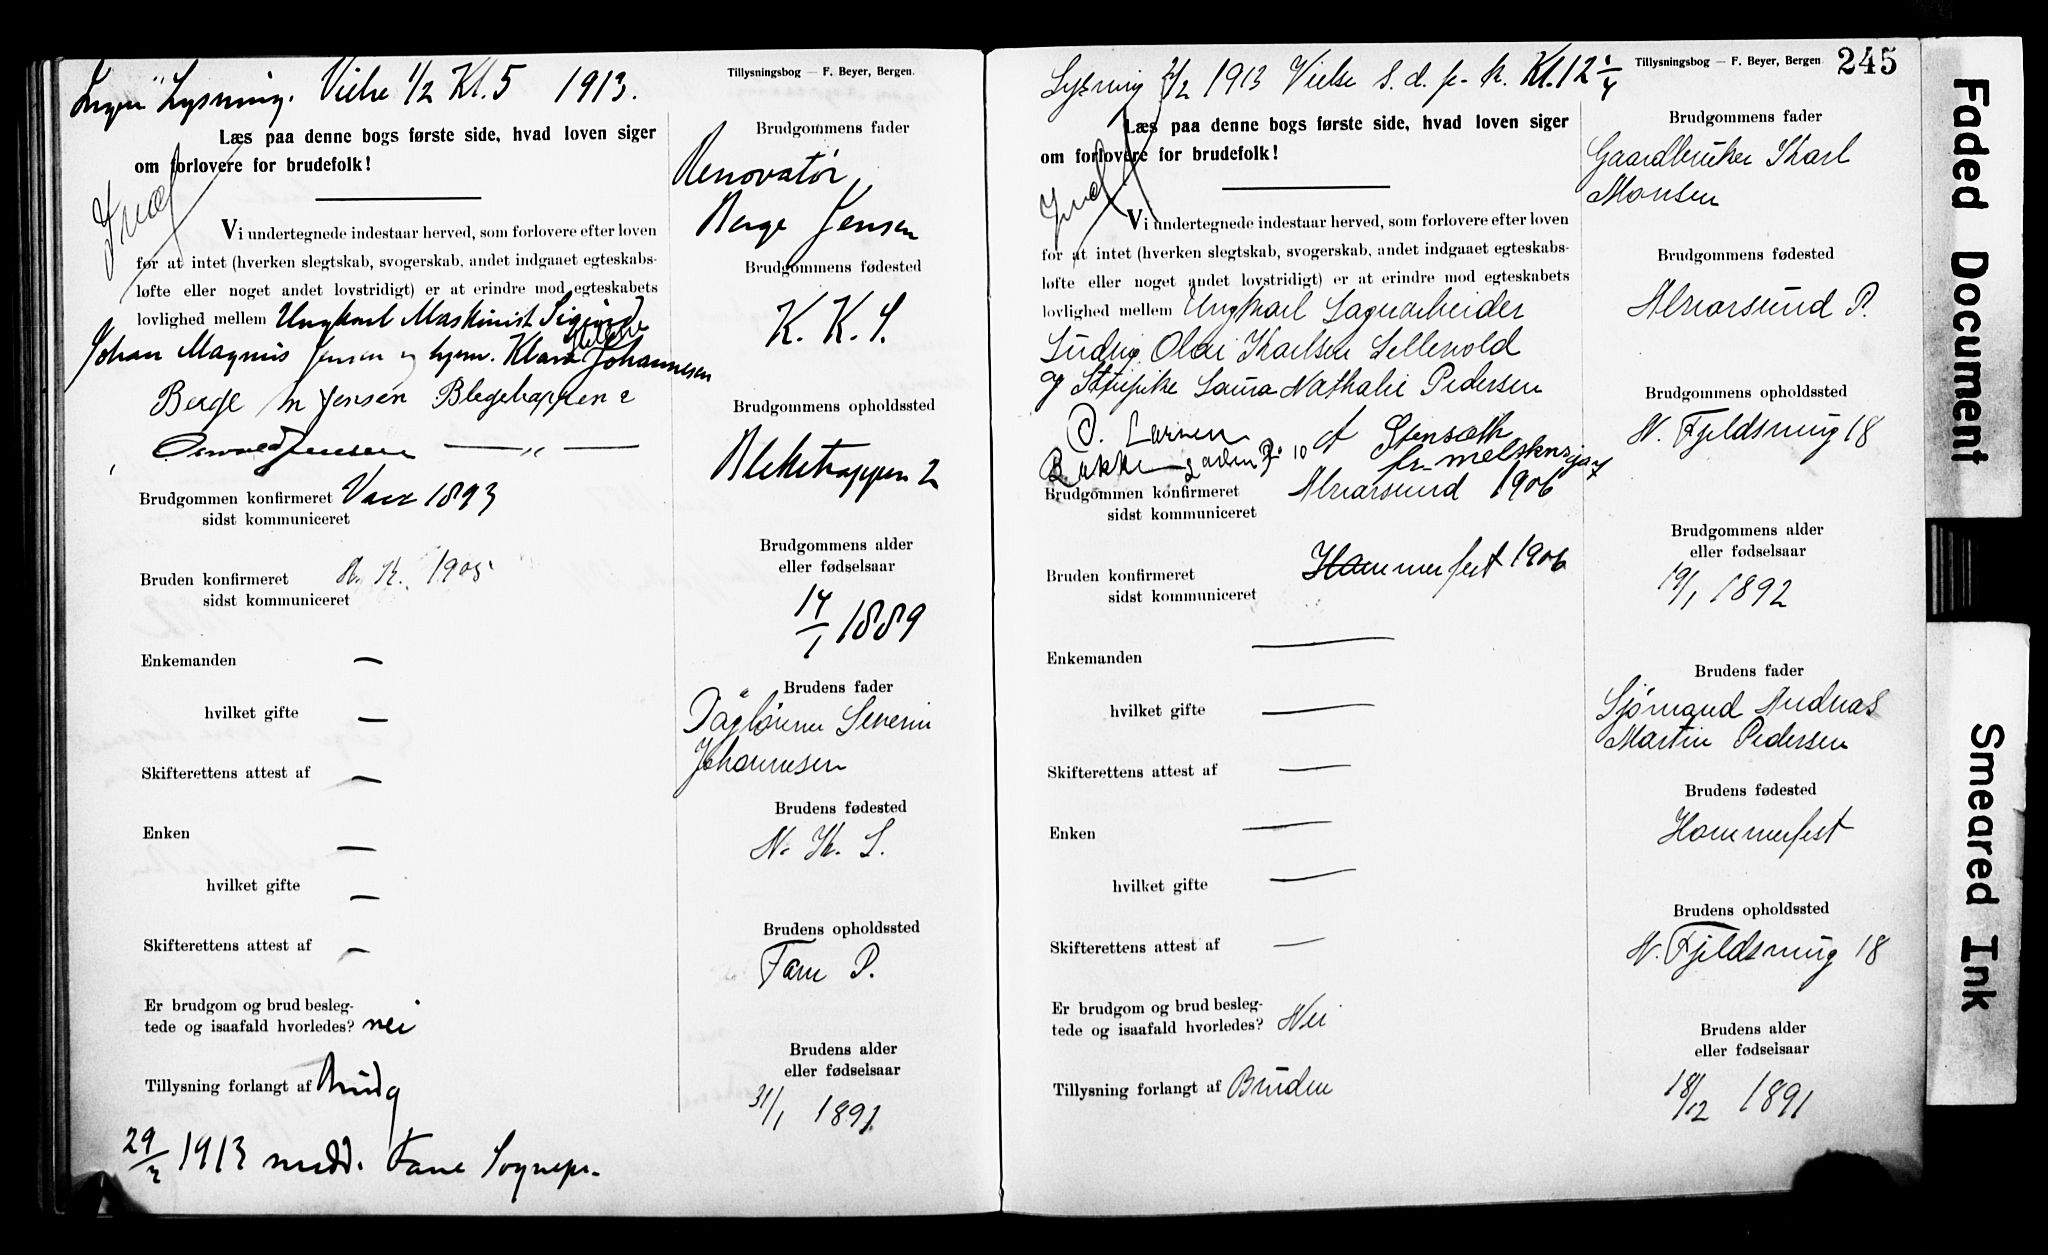 Ingen Lysning. Vielse 1/2 Kl. 5 1913.
Tillysningsbog — F. Beyer, Bergen.
Læs paa denne bogs første side, hvad loven siger
om forlovere for brudefolk!
Indf
Vi undertegnede indestaar herved, som forlovere efter loven
for at intet (hverken slegtskab, svogerskab, andet indgaaet egteskabs-
løfte eller noget andet lovstridigt) er at erindre mod egteskabets
lovlighed mellem Ungkarl Maskinist Sigurd
Johan Magnus Jensen og pigen Klara Johannesen
Berge M Jensen Blegetrappen 2
Osvald Jensen — „ —
Brudgommen konfirmeret Vaar 1893
sidst kommuniceret
Bruden konfirmeret N. K. 1905
sidst kommuniceret
Enkemanden —
hvilket gifte —
Skifterettens attest af —
Enken —
hvilket gifte —
Skifterettens attest af —
Er brudgom og brud besleg-
tede og isaafald hvorledes? nei
Tillysning forlangt af Brudg
29/3 1913 medd. Fane Sognepr.
Brudgommens fader
Renovatør
Berge Jensen
Brudgommens fødested
K. K. S.
Brudgommens opholdssted
Bleketrappen 2
Brudgommens alder
eller fødselsaar
14/1 1889
Brudens fader
Daglønner Severin
Johannesen
Brudens fødested
N. K. S.
Brudens opholdssted
Fane P.
Brudens alder
eller fødselsaar
31/1 1891
Lysning 2/2 1913 Vielse S. d. p. k. Kl. 12 1/4
Tillysningsbog — F. Beyer, Bergen
245
Læs paa denne bogs første side, hvad loven siger
om forlovere for brudefolk!
Indf
Vi undertegnede indestaar herved, som forlovere efter loven
for at intet (hverken slegtskab, svogerskab, andet indgaaet egteskabs-
løfte eller noget andet lovstridigt) er at erindre mod egteskabets
lovlighed mellem Ungkarl Sagarbeider
Ludvig Olai Karlsen Sellevold
og Pike Laura Nathalie Pedersen
O. Larsen A Stensæth
10
Brudgommen konfirmeret Alvarsund 1906
sidst kommuniceret
Bruden konfirmeret Hammerfest 1906
sidst kommuniceret
Enkemanden —
hvilket gifte —
Skifterettens attest af —
Enken —
hvilket gifte —
Skifterettens attest af —
Er brudgom og brud besleg-
tede og isaafald hvorledes? Nei
Tillysning forlangt af Bruden
Brudgommens fader
Gaardbruker Karl
Monsen
Brudgommens fødested
Alvarsund P.
Brudgommens opholdssted
N. Fjeldsmug 18
Brudgommens alder
eller fødselsaar
19/1 1892
Brudens fader
Sjømand Andreas
Martin Pedersen
Brudens fødested
Hammerfest
Brudens opholdssted
N. Fjeldsmug 18
Brudens alder
eller fødselsaar
18/12 1891
Faded Document
Smeared Ink